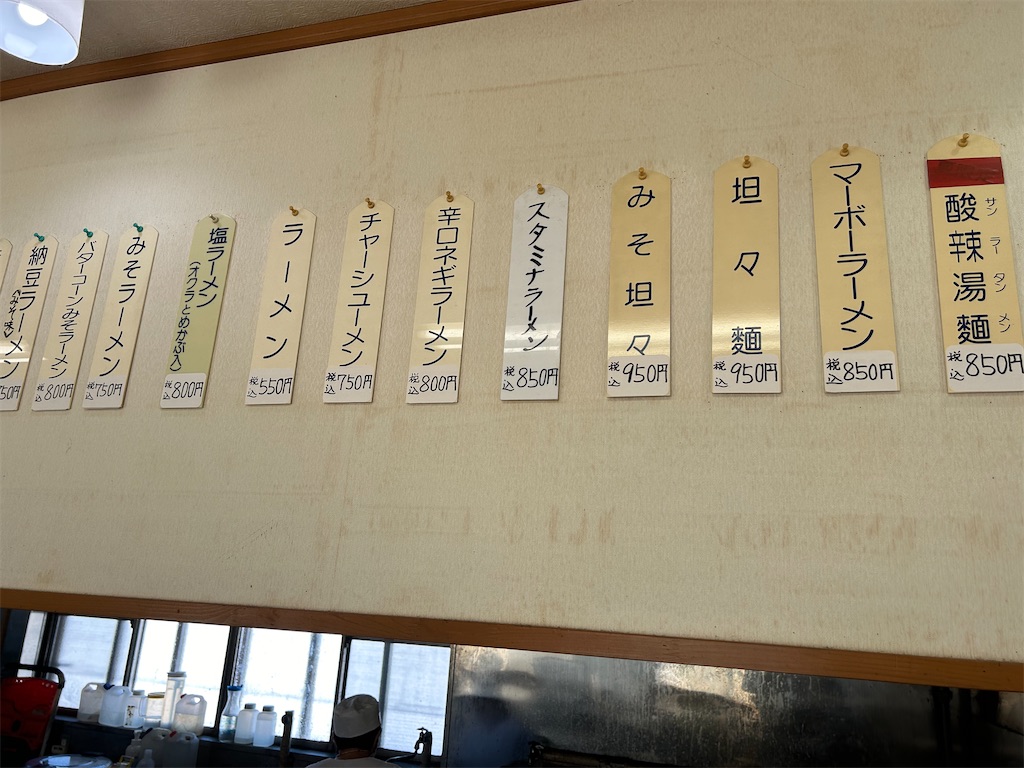 酸辣湯麺
サンラータンメン
税込850円
マーボーラーメン
税込850円
坦々麺
税込950円
みそ坦々
税込950円
スタミナラーメン
税込850円
辛口ネギラーメン
税込800円
チャーシューメン
税込750円
ラーメン
税込550円
塩ラーメン
(オクラとめかぶ入)
税込800円
みそラーメン
税込750円
バターコーンみそラーメン
税込800円
納豆ラーメン
(みそ味)
750円